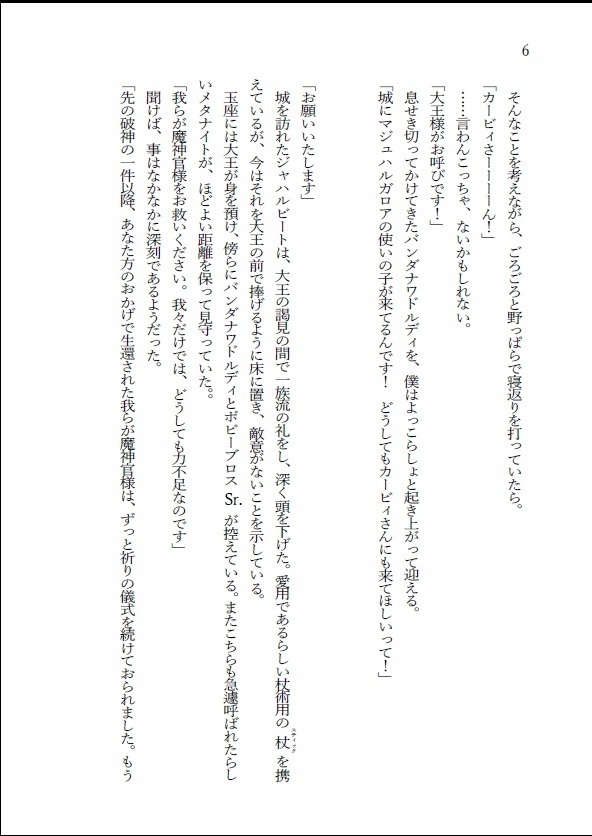 6
そんなことを考えながら、ごろごろと野っぱらで寝返りを打っていたら。
「カービィさーーーーん！」
……言わんこっちゃ、ないかもしれない。
「大王様がお呼びです！」
息せき切ってかけてきたバンダナワドルディを、僕はよっこらしょと起き上がって迎える。
「城にマジュハルガロアの使いの子が来てるんです！　どうしてもカービィさんにも来てほしいって！」
「お願いいたします」
城を訪れたジャハルビートは、大王の謁見の間で一族流の礼をし、深く頭を下げた。愛用であるらしい杖術用の杖を携
スティック
えているが、今はそれを大王の前で捧げるように床に置き、敵意がないことを示している。
玉座には大王が身を預け、傍らにバンダナワドルディとボビーブロス Sr. が控えている。またこちらも急遽呼ばれたらし
いメタナイトが、ほどよい距離を保って見守っていた。。
「我らが魔神官様をお救いください。我々だけでは、どうしても力不足なのです」
聞けば、事はなかなかに深刻であるようだった。
「先の破神の一件以降、あなた方のおかげで生還された我らが魔神官様は、ずっと祈りの儀式を続けておられました。もう